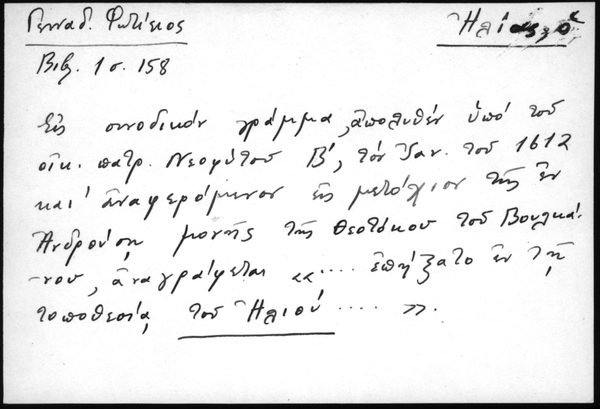 Γενναδ. Φωτίειος
Βιβ. 1 σ. 158
Εἰς συνοδικόν γράμμα, ἀπολυθέν ὑπό τοῦ
οἰκ. πατρ. Νεοφύτου Β', τόν Ἰαν. τοῦ 1612
και' ἀναφερόμενον εἰς μετόχιον τῆς ἐν
Ἀνδρούσῃ μονῆς τῆς Θεοτόκου τοῦ Βουλκά-
νου, ἀναγράφεται «.... ἐπήξατο ἐν τῇ
τοποθεσίᾳ τοῦ Ἡλιοῦ .... ».